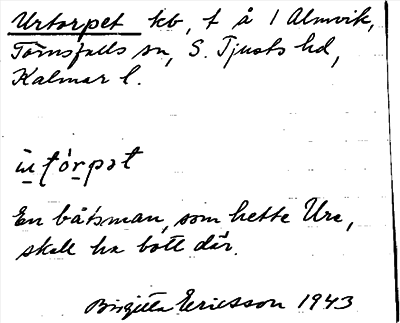 Urtorpet kb, t å 1 Almvik,
Törnsfalls sn, S. Tjusts hd,
Kalmar l.
En båtsman, som hette Ure,
skall ha bott där.
Birgitta Ericsson 1943